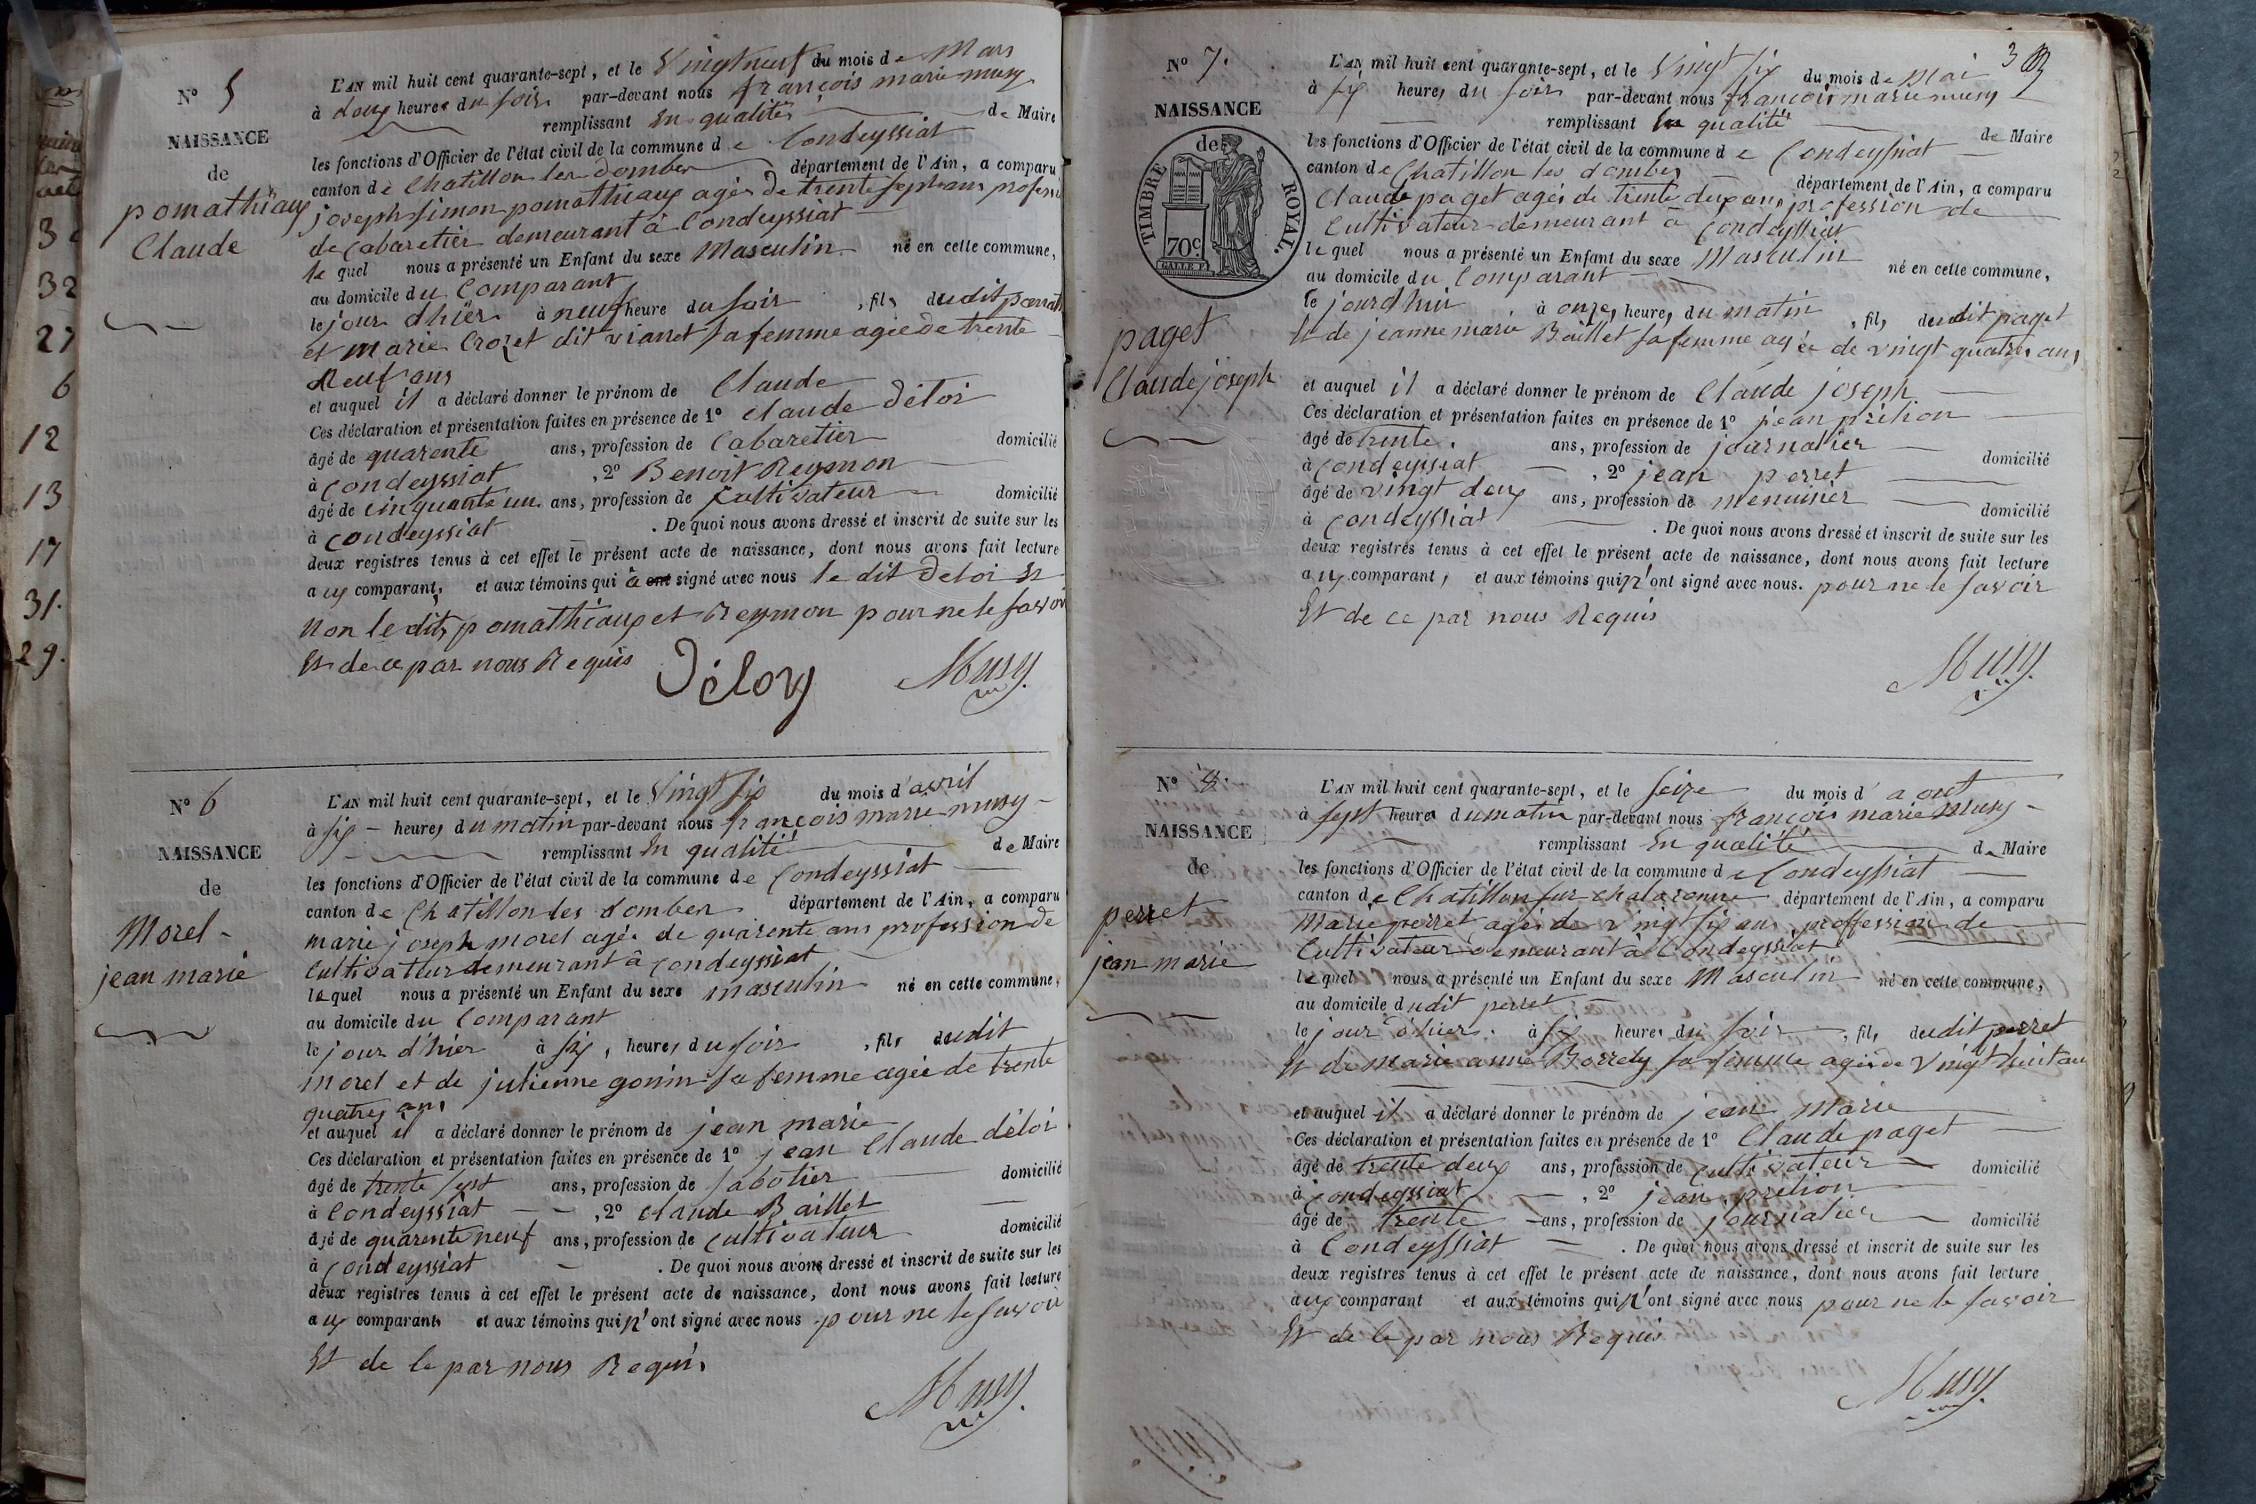 N° 5
NAISSANCE
de
pomathiaux
Claude
L'AN mil huit cent quarante-sept, et le Vingt neuf du mois de Mars
à deux heures du soir par-devant nous françois marie musy
remplissant En qualité de Maire
les fonctions d'Officier de l'état civil de la commune de Condeyssiat
canton de Chatillon les dombes département de l'Ain, a comparu
joseph simon pomathiaux agés de trente sept ans profession
de Cabaretier demeurant à Condeyssiat
le quel nous a présenté un Enfant du sexe Masculin né en cette commune,
au domicile du Comparant
le jour d'hier à neuf heure du soir, fils dudit pomath
et marie Crozet dit vianet sa femme agée de trente
Neuf ans
et auquel il a déclaré donner le prénom de Claude
Ces déclaration et présentation faites en présence de 1° Claude Déloi
âgé de quarente ans, profession de Cabaretier domicilié
à Condeyssiat, 2° Benoit Reymon
âgé de cinquante un ans, profession de Cultivateur domicilié
à Condeyssiat. De quoi nous avons dressé et inscrit de suite sur les
deux registres tenus à cet effet le présent acte de naissance, dont nous avons fait lecture
aux comparants et aux témoins qui a ont signé avec nous le dit Deloi Et
Non le dits pomathiaux et Reymon pour ne le savoir
Et de ce par nous Requis
Déloy Musy
N° 6
NAISSANCE
de
Morel
jean marie
L'AN mil huit cent quarante-sept, et le Vingt six du mois d'avril
à six heures du matin par-devant nous françois marie musy
remplissant En qualité de Maire
les fonctions d'Officier de l'état civil de la commune de Condeyssiat
canton de Chatillon les dombes département de l'Ain, a comparu
marie joseph morel agée de quarente ans profession de
Cultivateur demeurant à Condeyssiat
lequel nous a présenté un Enfant du sexe masculin né en cette commune,
au domicile du Comparant
le jour d'hier à six, heures du soir, fils dudit
morel et de julienne gonin sa femme agée de trente
quatres ans
et auquel il a déclaré donner le prénom de jean marie
Ces déclaration et présentation faites en présence de 1° jean Claude déloi
âgé de trente sept ans, profession de sabotier domicilié
à Condeyssiat, 2° Claude Baillet
âgé de quarente neuf ans, profession de Cultivateur domicilié
à Condeyssiat. De quoi nous avons dressé et inscrit de suite sur les
deux registres tenus à cet effet le présent acte de naissance, dont nous avons fait lecture
aux comparants et aux témoins qui n'ont signé avec nous pour ne le savoir
Et de Ce par nous Requis
Musy
3
N° 7.
NAISSANCE
de
TIMBRE ROYAL.
70c.
paget
Claude joseph
L'AN mil huit cent quarante-sept, et le Vingt six du mois de Mai
à six heures du soir par-devant nous françois marie musy
remplissant En qualité de Maire
les fonctions d'Officier de l'état civil de la commune de Condeyssiat
canton de Chatillon les dombes département de l'Ain, a comparu
Claude paget agés de trente deux ans profession de
Cultivateur demeurant à Condeyssiat
le quel nous a présenté un Enfant du sexe Masculin né en cette commune,
au domicile du Comparant
le jourd'hui à onze, heures du matin, fils dudit paget
Et de jeanne marie Baillet sa femme agée de vingt quatres ans
et auquel il a déclaré donner le prénom de Claude joseph
Ces déclaration et présentation faites en présence de 1° jean prélion
âgé de trente. ans, profession de journalier domicilié
à Condeyssiat, 2° jean perret
âgé de vingt deux ans, profession de menuisier domicilié
à Condeyssiat. De quoi nous avons dressé et inscrit de suite sur les
deux registres tenus à cet effet le présent acte de naissance, dont nous avons fait lecture
aux comparant, et aux témoins qui n'ont signé avec nous. pour ne le savoir
Et de ce par nous Requis
Musy
N° 8.
NAISSANCE
de
perret
jean marie
L'AN mil huit cent quarante-sept, et le Seize du mois d'aout
à sept heures du matin par-devant nous françois marie Musy
remplissant En qualité de Maire
les fonctions d'Officier de l'état civil de la commune de Condeyssiat
canton de Chatillon sur chalaronne département de l'Ain, a comparu
Marie perret agés de vingt six ans, proffession de
Cultivateur demeurant à Condeyssiat
lequel nous a présenté un Enfant du sexe Masculin né en cette commune,
au domicile dudit perret
le jour d'hier. à six heures du soir, fils dudit perret
Et de marie anne Borrely sa femme agés de Vingt huit ans
et auquel il a déclaré donner le prénom de jean Marie
Ces déclaration et présentation faites en présence de 1° Claude paget
âgé de trente deux ans, profession de Cultivateur domicilié
à Condeyssiat, 2° jean prélion
âgé de trente ans, profession de journalier domicilié
à Condeyssiat. De quoi nous avons dressé et inscrit de suite sur les
deux registres tenus à cet effet le présent acte de naissance, dont nous avons fait lecture
aux comparant et aux témoins qui n'ont signé avec nous pour ne le savoir
Et de Ce par nous Requis
Musy